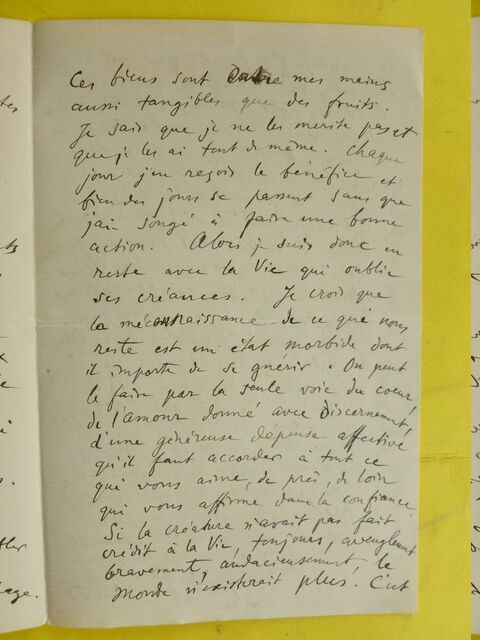 Ces biens sont entre mes mains
aussi tangibles que des fruits.
Je sais que je ne les mérite pas et
que je les ai tout de même. Chaque
jour j'en reçois le bénéfice et
bien des jours se passent sans que
j'aie songé à faire une bonne
action. Alors je suis donc en
reste avec la Vie qui oublie
ses créances. Je crois que
la méconnaissance de ce qui nous
reste est un état morbide dont
il importe de se guérir. On peut
le faire par la seule voie du cœur,
de l'amour donné avec Discernement,
d'une généreuse dépense affective
qu'il faut accorder à tout ce
qui vous aime, de près, de loin
qui vous affirme dans la confiance.
Si la créature n'avait pas fait
crédit à la Vie, toujours, aveuglément
bravement, audacieusement, le
Monde n'existerait plus. C'est
tes
ts
tler
age.